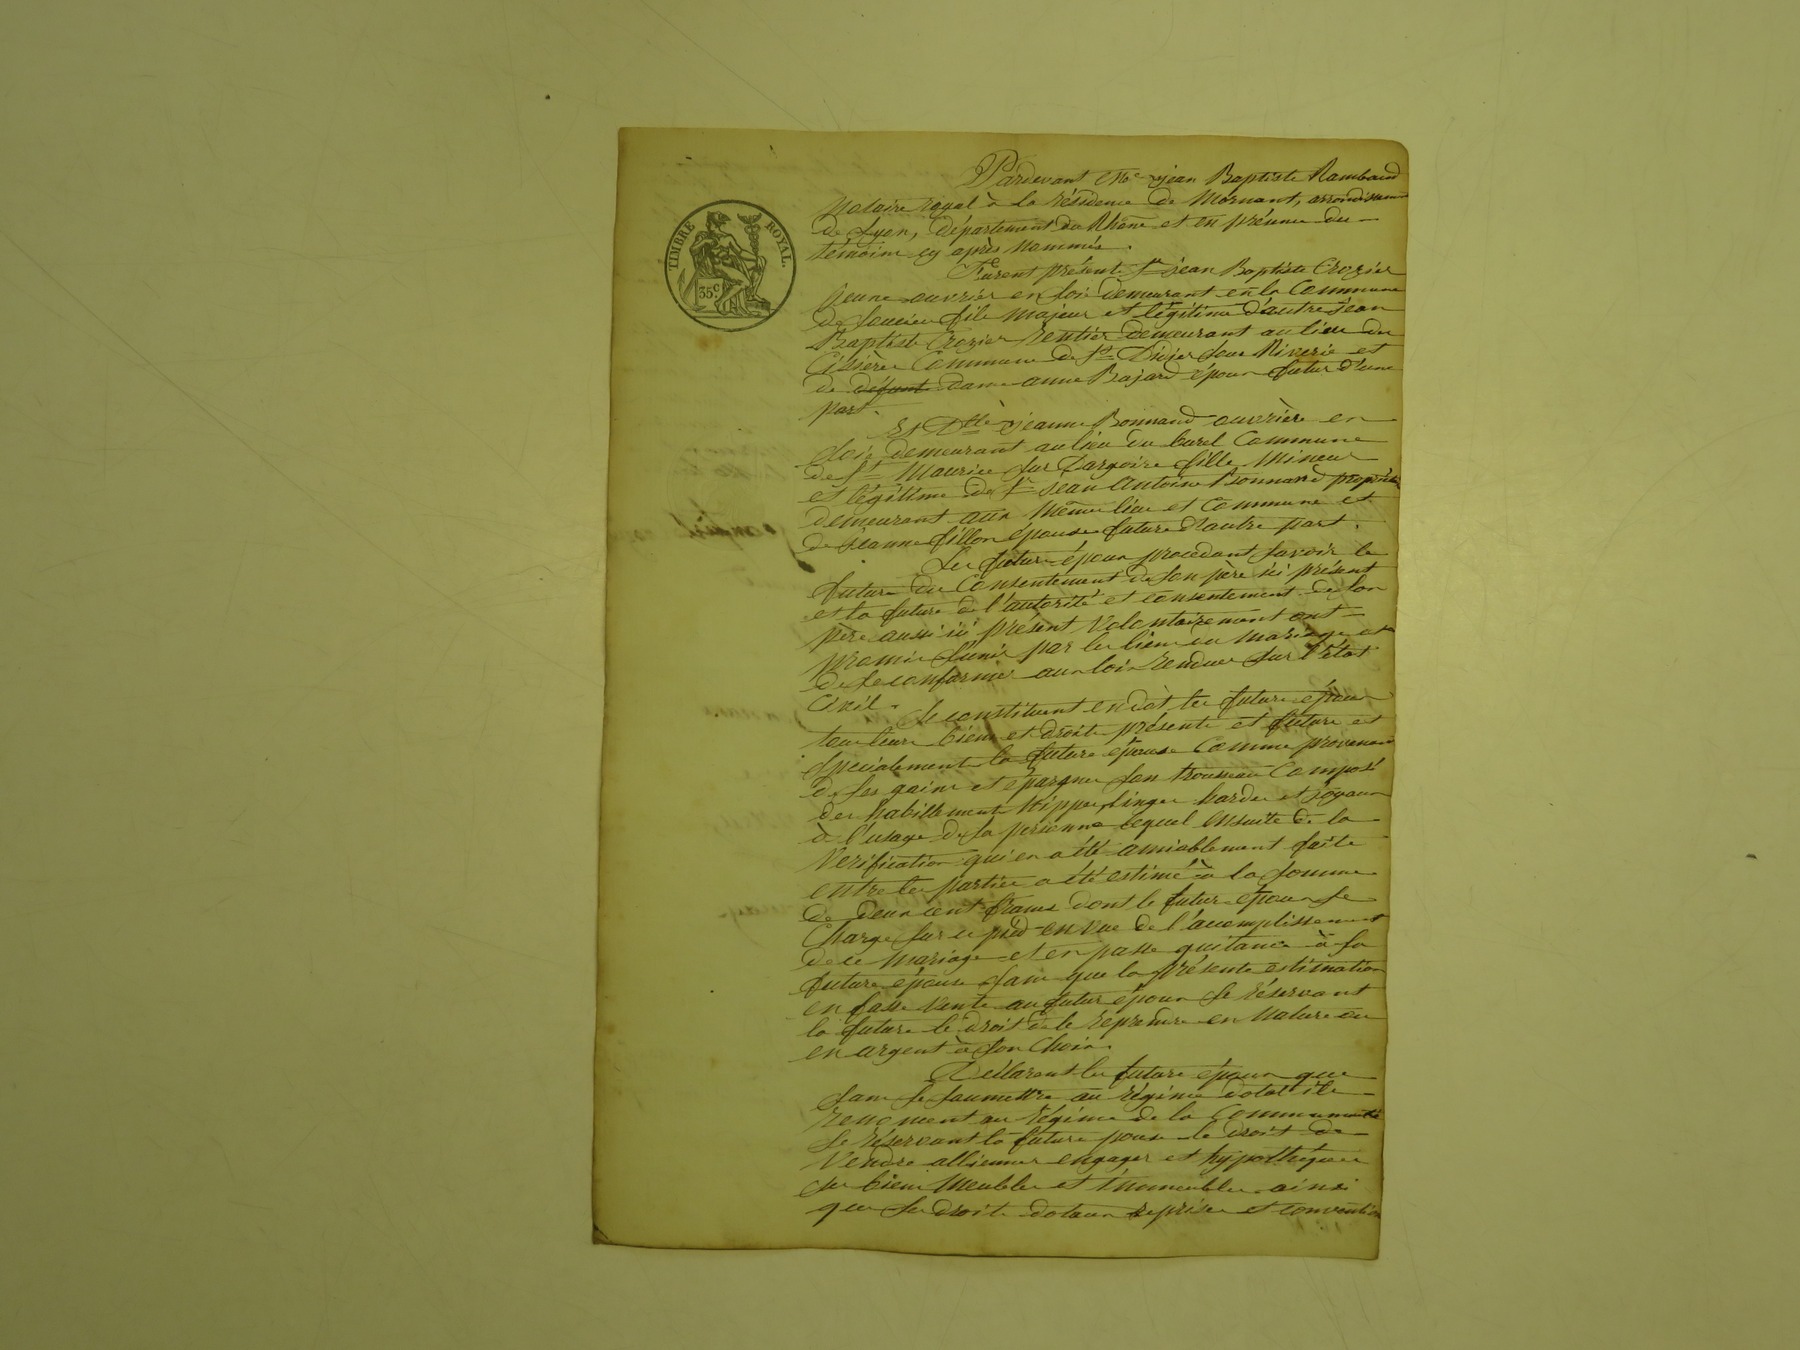 TIMBRE ROYAL.
35 c.
Pardevant Me jean Baptiste Rambaud
Notaire royal à la résidence de Mornant, arrondissement
de Lyon, département du Rhône et en présence du
témoins cy après Nommés.
Furent présents Sr jean Baptiste Crozier
jeune ouvrier en soie demeurant en la Commune
de Soucieu fils Majeur et légitime d'autre jean
Baptiste Crozier Rentier demeurant au lieu du
Commune de St Didier sous Riverie et
de défunte dame anne Bajard époux futur d'une
part.
Et Dlle jeanne Bonnand ouvrière en
soie demeurant au lieu du burel Commune
de St Maurice sur Dargoire fille Mineur
et légitime de Sr jean Antoine Bonnand propriét
demeurant aux Même lieu et Commune et
de jeanne fillon épouse future d'autre part.
Les futurs époux procédant savoir le
futur du Consentement de son père ici présent
et la future de l'autorité et consentement de son
père aussi ici présent Volontairement ont
promis s'unir par les liens du mariage et
de se conformer aux lois rendues sur l'état
Civil.
Se constituent en dot les futurs époux
tous leurs biens et droits présents et futurs et
specialement la future épouse Comme provenant
de ses gains et épargnes son trousseau Composé
des habillements Nippes linges hardes et joyaux
à l'usage de sa personne lequel ensuite de la
Verification qui en a été amiablement faite
entre les parties a été estimé à la somme
de deux cent francs dont le futur époux se
Charge sur ce pied en vue de l'accomplissement
de ce mariage et en passe quittance à sa
future épouse sans que la présente estimation
en fasse vente au futur époux se réservant
la future le droit de le reprendre en Nature ou
en argent à son Choix.
Déclarent les futurs époux que
sans se soumettre au régime dotal ils
renoncent au régime de la Communauté
se réservant la future épouse le droit de
Vendre alliener engager et hypothéquer
ses biens Meubles et immeubles ainsi
que ses droits dotaux reprises et convention